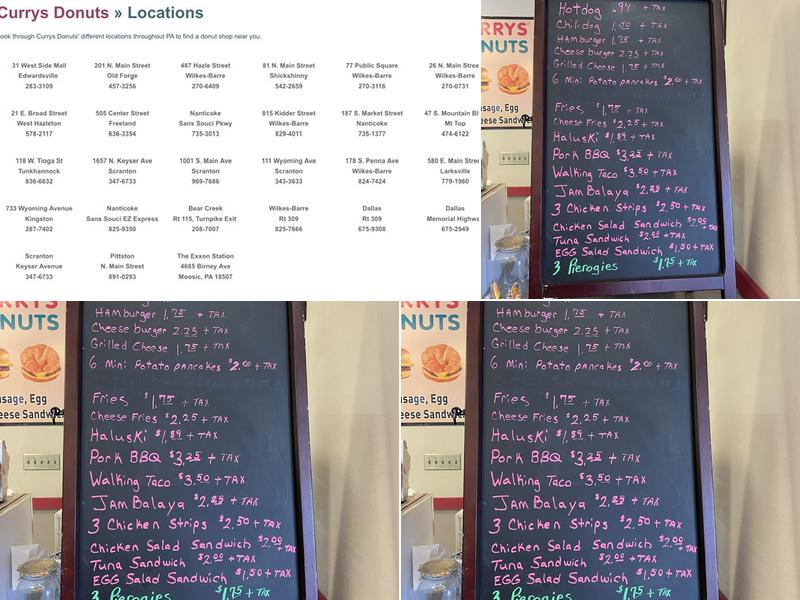 Currys Donuts » Locations
ook through Currys Donuts' different locations throughout PA to find a donut shop near you.
31 West Side Mall
Edwardsville
283-3109
201 N. Main Street
Old Forge
457-3256
487 Hazle Street
Wilkes-Barre
270-6409
81 N. Main Street
Shickshinny
542-2659
77 Public Square
Wilkes-Barre
270-3116
26 N. Main Stree
Wilkes-Barre
270-0731
21 E. Broad Street
West Hazleton
578-2117
505 Center Street
Freeland
636-3354
Nanticoke
Sans Souci Pkwy
735-3013
815 Kidder Street
Wilkes-Barre
829-4011
187 S. Market Street
Nanticoke
735-1377
47 S. Mountain Bl
Mt Top
474-6122
118 W. Tioga St
Tunkhannock
836-6632
1657 N. Keyser Ave
Scranton
347-6733
1001 S. Main Ave
Scranton
969-7686
111 Wyoming Ave
Scranton
343-3633
178 S. Penna Ave
Wilkes-Barre
824-7424
580 E. Main Stree
Larksville
779-1960
733 Wyoming Avenue
Kingston
287-7402
Nanticoke
Sans Souci EZ Express
825-9350
Bear Creek
Rt 115, Turnpike Exit
208-7007
Wilkes-Barre
Rt 309
825-7666
Dallas
Rt 309
675-9308
Dallas
Memorial Highwa
675-2949
Scranton
Keyser Avenue
347-6733
Pittston
N. Main Street
891-0293
The Exxon Station
4685 Birney Ave
Moosic, PA 18507
RRYS
NUTS
usage, Egg
eese Sandw
Hotdog .94 + TAX
Chilidog 1.50 + TAX
HAmburger 1.75 + TAX
Cheese burger 2.25 + TAX
Grilled Cheese 1.75 + TAX
6 Mini Potato pancakes $2.00 + TAX
Fries $1.75 + TAX
Cheese Fries $2.25 + TAX
HalusKi $1.89 + TAX
Pork BBQ $3.25 + TAX
Walking Taco $3.50 + TAX
JamBalaya $2.25 + TAX
3 Chicken Strips $2.50 + TAX
Chicken Salad Sandwich $2.00 + TAX
Tuna Sandwich $2.00 + TAX
EGG Salad Sandwich $1.50 + TAX
3 Pierogies $1.75 + TAX
RRYS
NUTS
sage, Egg
eese Sandwic
HAmburger 1.75 + TAX
Cheese burger 2.25 + TAX
Grilled Cheese 1.75 + TAX
6 Mini Potato pancakes $2.00 + TAX
Fries $1.75 + TAX
Cheese Fries $2.25 + TAX
HalusKi $1.89 + TAX
Pork BBQ $3.25 + TAX
Walking Taco $3.50 + TAX
JamBalaya $2.25 + TAX
3 Chicken Strips $2.50 + TAX
Chicken Salad Sandwich $2.00 + TAX
Tuna Sandwich $2.00 + TAX
EGG Salad Sandwich $1.50 + TAX
3 Pierogies $1.75 + TAX
RRYS
NUTS
sage, Egg
eese Sandwic
HAmburger 1.75 + TAX
Cheese burger 2.25 + TAX
Grilled Cheese 1.75 + TAX
6 Mini Potato pancakes $2.00 + TAX
Fries $1.75 + TAX
Cheese Fries $2.25 + TAX
HalusKi $1.89 + TAX
Pork BBQ $3.25 + TAX
Walking Taco $3.50 + TAX
JamBalaya $2.25 + TAX
3 Chicken Strips $2.50 + TAX
Chicken Salad Sandwich $2.00 + TAX
Tuna Sandwich $2.00 + TAX
EGG Salad Sandwich $1.50 + TAX
3 Pierogies $1.75 + TAX